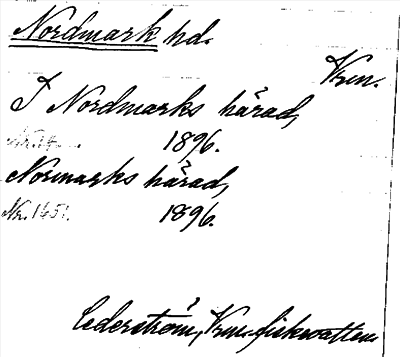 Nordmark hd.
Vrm.
I Nordmarks härad,
1896.
Normarks härad,
Nr. 1451. 1896.
Cederström, Vrm. fiskevatten